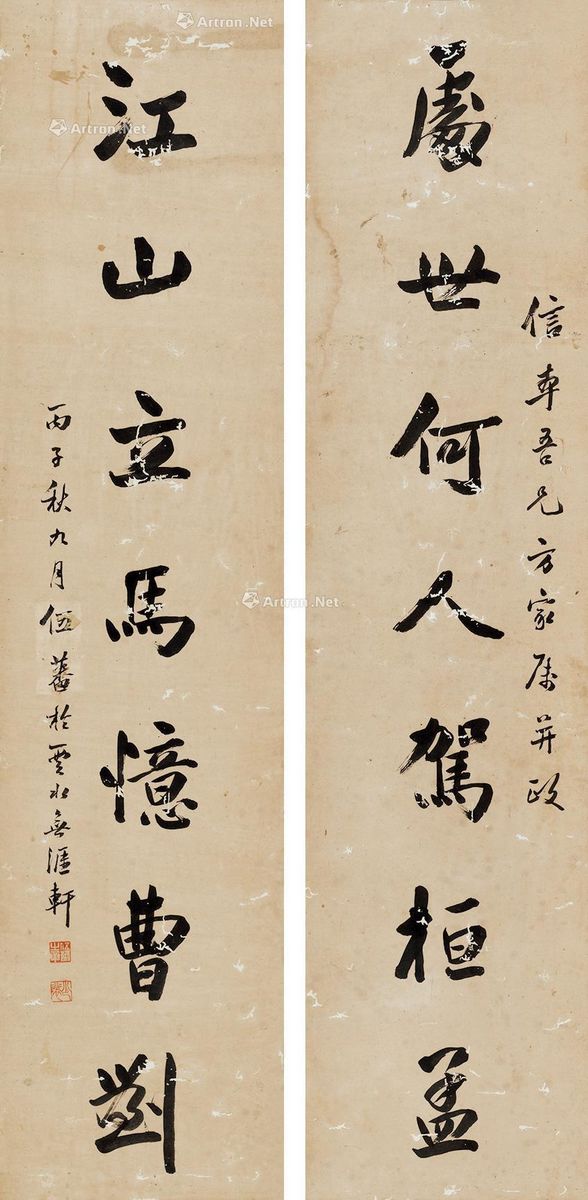 信吾兄方家属并政
處世何人駕桓孟
江山立馬憶曹劉
丙子秋九月伍蕃於雲水無涯軒
Artron.Net
Artron.Net
Artron.Net
Artron.Net
Artron.Net